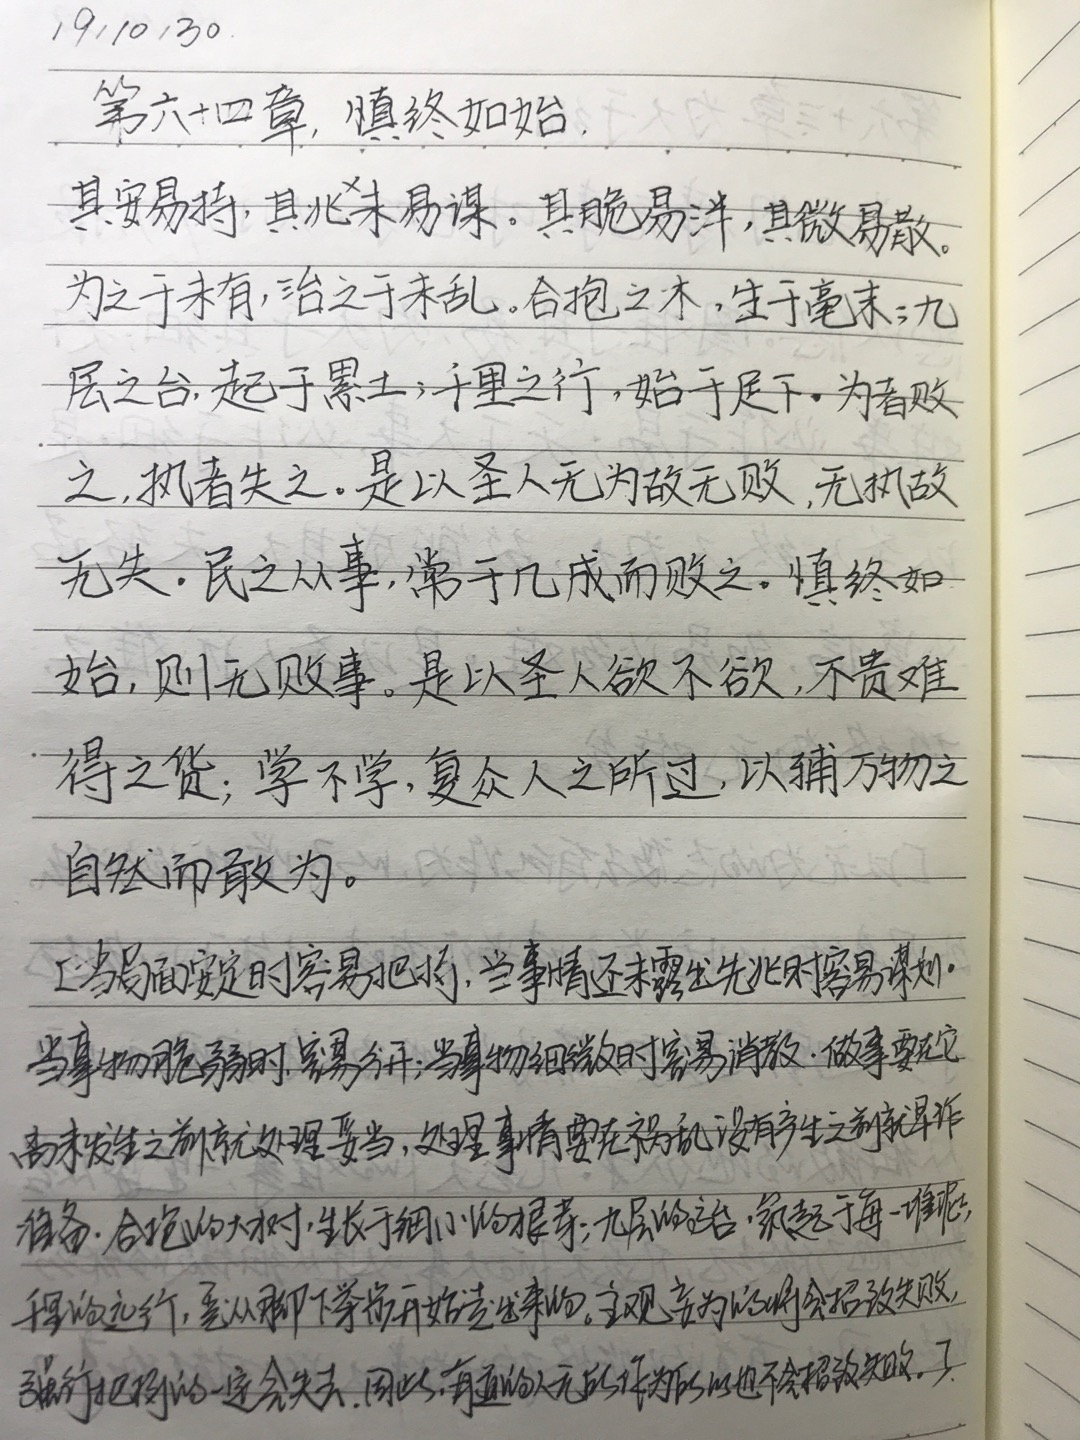 19,10,30.
第六十四章,慎终如始.
其安易持,其兆未易谋。其脆易泮,其微易散。
为之于未有,治之于未乱。合抱之木,生于毫末;九
层之台,起于累土;千里之行,始于足下。为者败
之,执者失之。是以圣人无为故无败,无执故
无失。民之从事,常于几成而败之。慎终如
始,则无败事。是以圣人欲不欲,不贵难
得之货;学不学,复众人之所过,以辅万物之
自然而敢为。
[当局面安定时容易把持,当事情还未露出先兆时容易谋划.
当事物脆弱时,容易分开;当事物细微时容易消散.做事要在它
尚未发生之前就处理妥当,处理事情要在祸乱没有产生之前就早作
准备.合抱的大树,生长于细小的根芽;九层的高台,筑起于每一堆泥;
千里的远行,是从脚下举步开始走出来的。主观妄为的将会招致失败,
强行把持的一定会失去.因此,有道的人无所作为所以也不会招致失败。